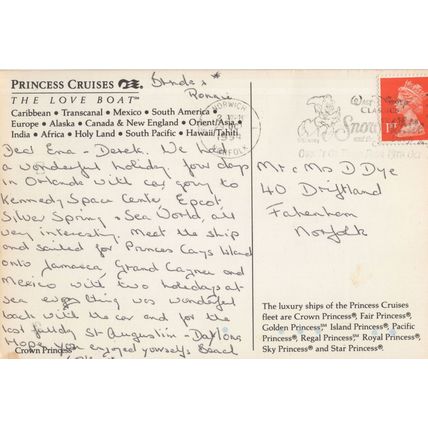 PRINCESS CRUISES
THE LOVE BOAT℠
Caribbean • Transcanal • Mexico • South America •
Europe • Alaska • Canada & New England • Orient/Asia •
India • Africa • Holy Land • South Pacific • Hawaii/Tahiti
Ronnie
NORWICH
1994
NORFOLK
Walt Disney
CLASSICS
Snow
1ST
Dear Ena - Derek. We had
a wonderful holiday four days
in Orlando with car going to
Kennedy Space Center, Epcot,
Silver Spring + Sea World, all
very interesting. Meet the ship
and sailed for Princes Cays Island
onto Jamaica, Grand Cayman and
Mexico with two holidays at
sea every thing was wonderful
back with the car and for the
last St Augustin - Daytona
Hope you enjoyed yourselfs Beach
Crown Princess
Mr & Mrs D Dye
40 Driftland
Fakenham
Norfolk
The luxury ships of the Princess Cruises
fleet are Crown Princess®, Fair Princess®,
Golden Princess℠, Island Princess®, Pacific
Princess®, Regal Princess℠, Royal Princess®,
Sky Princess® and Star Princess®.